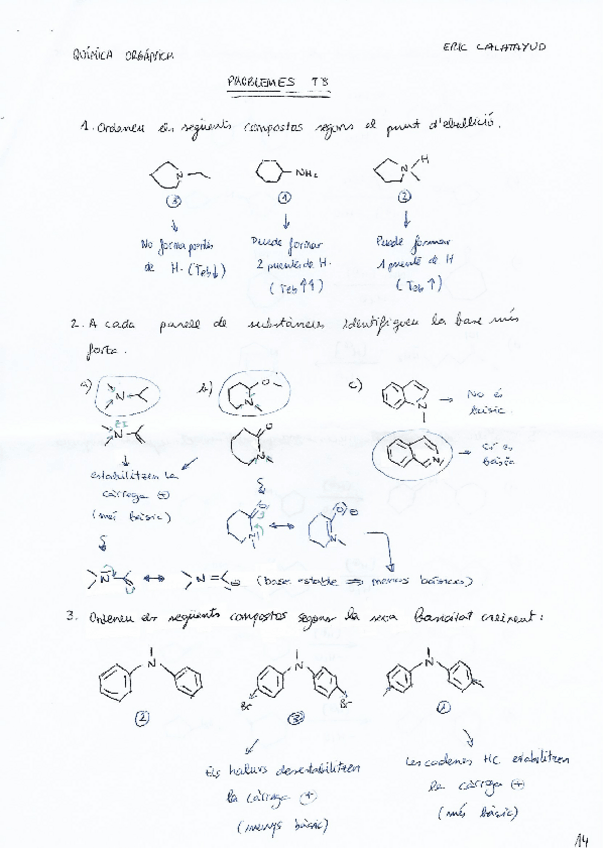 QUÍMICA ORGÀNICA
ERIC CALATAYUD
PROBLEMES T8
1. Ordeneu els següents compostos segons el punt d'ebullició.
N
NH2
N H
3
1
2
No forma ponts
de H. (Teb↓)
Puede formar
2 puentes de H.
(Teb↑↑)
Puede formar
1 puente de H
(Teb↑)
2. A cada parell de substàncies identifiqueu la base més
forta.
a)
N
N
b)
O
N
O
N
c)
N
→ No és
bàsic.
N
→ Sí és
bàsic
estabilitzen la
càrrega ⊕
(més bàsic)
N
O
N
O
⊖
N
N
⊖
(base estable ⇒ menys bàsica)
3. Ordeneu els següents compostos segons la seva basicitat creixent:
N
N
N
Br
Br
2
3
1
Els halurs desestabilitzen
la càrrega ⊕
(menys bàsic)
Les cadenes HC estabilitzen
la càrrega ⊕
(més bàsic)
14